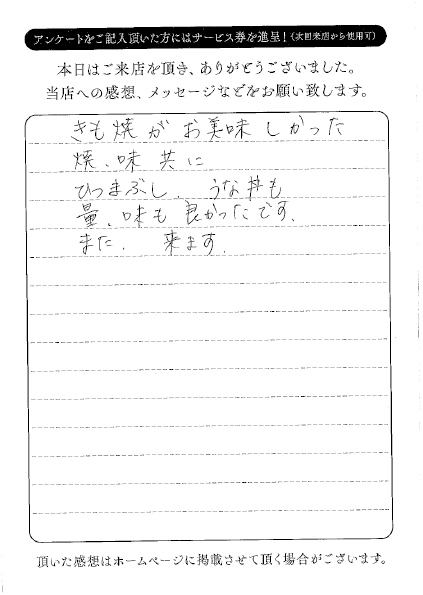 アンケートをご記入頂いた方にはサービス券を進呈！（次回来店から使用可）
本日はご来店を頂き、ありがとうございました。
当店への感想、メッセージなどをお願い致します。
きも焼が お美味しかった
焼、味 共に
ひつまぶし、うな丼も
量、味も 良かったです、
また、来ます、
頂いた感想はホームページに掲載させて頂く場合がございます。